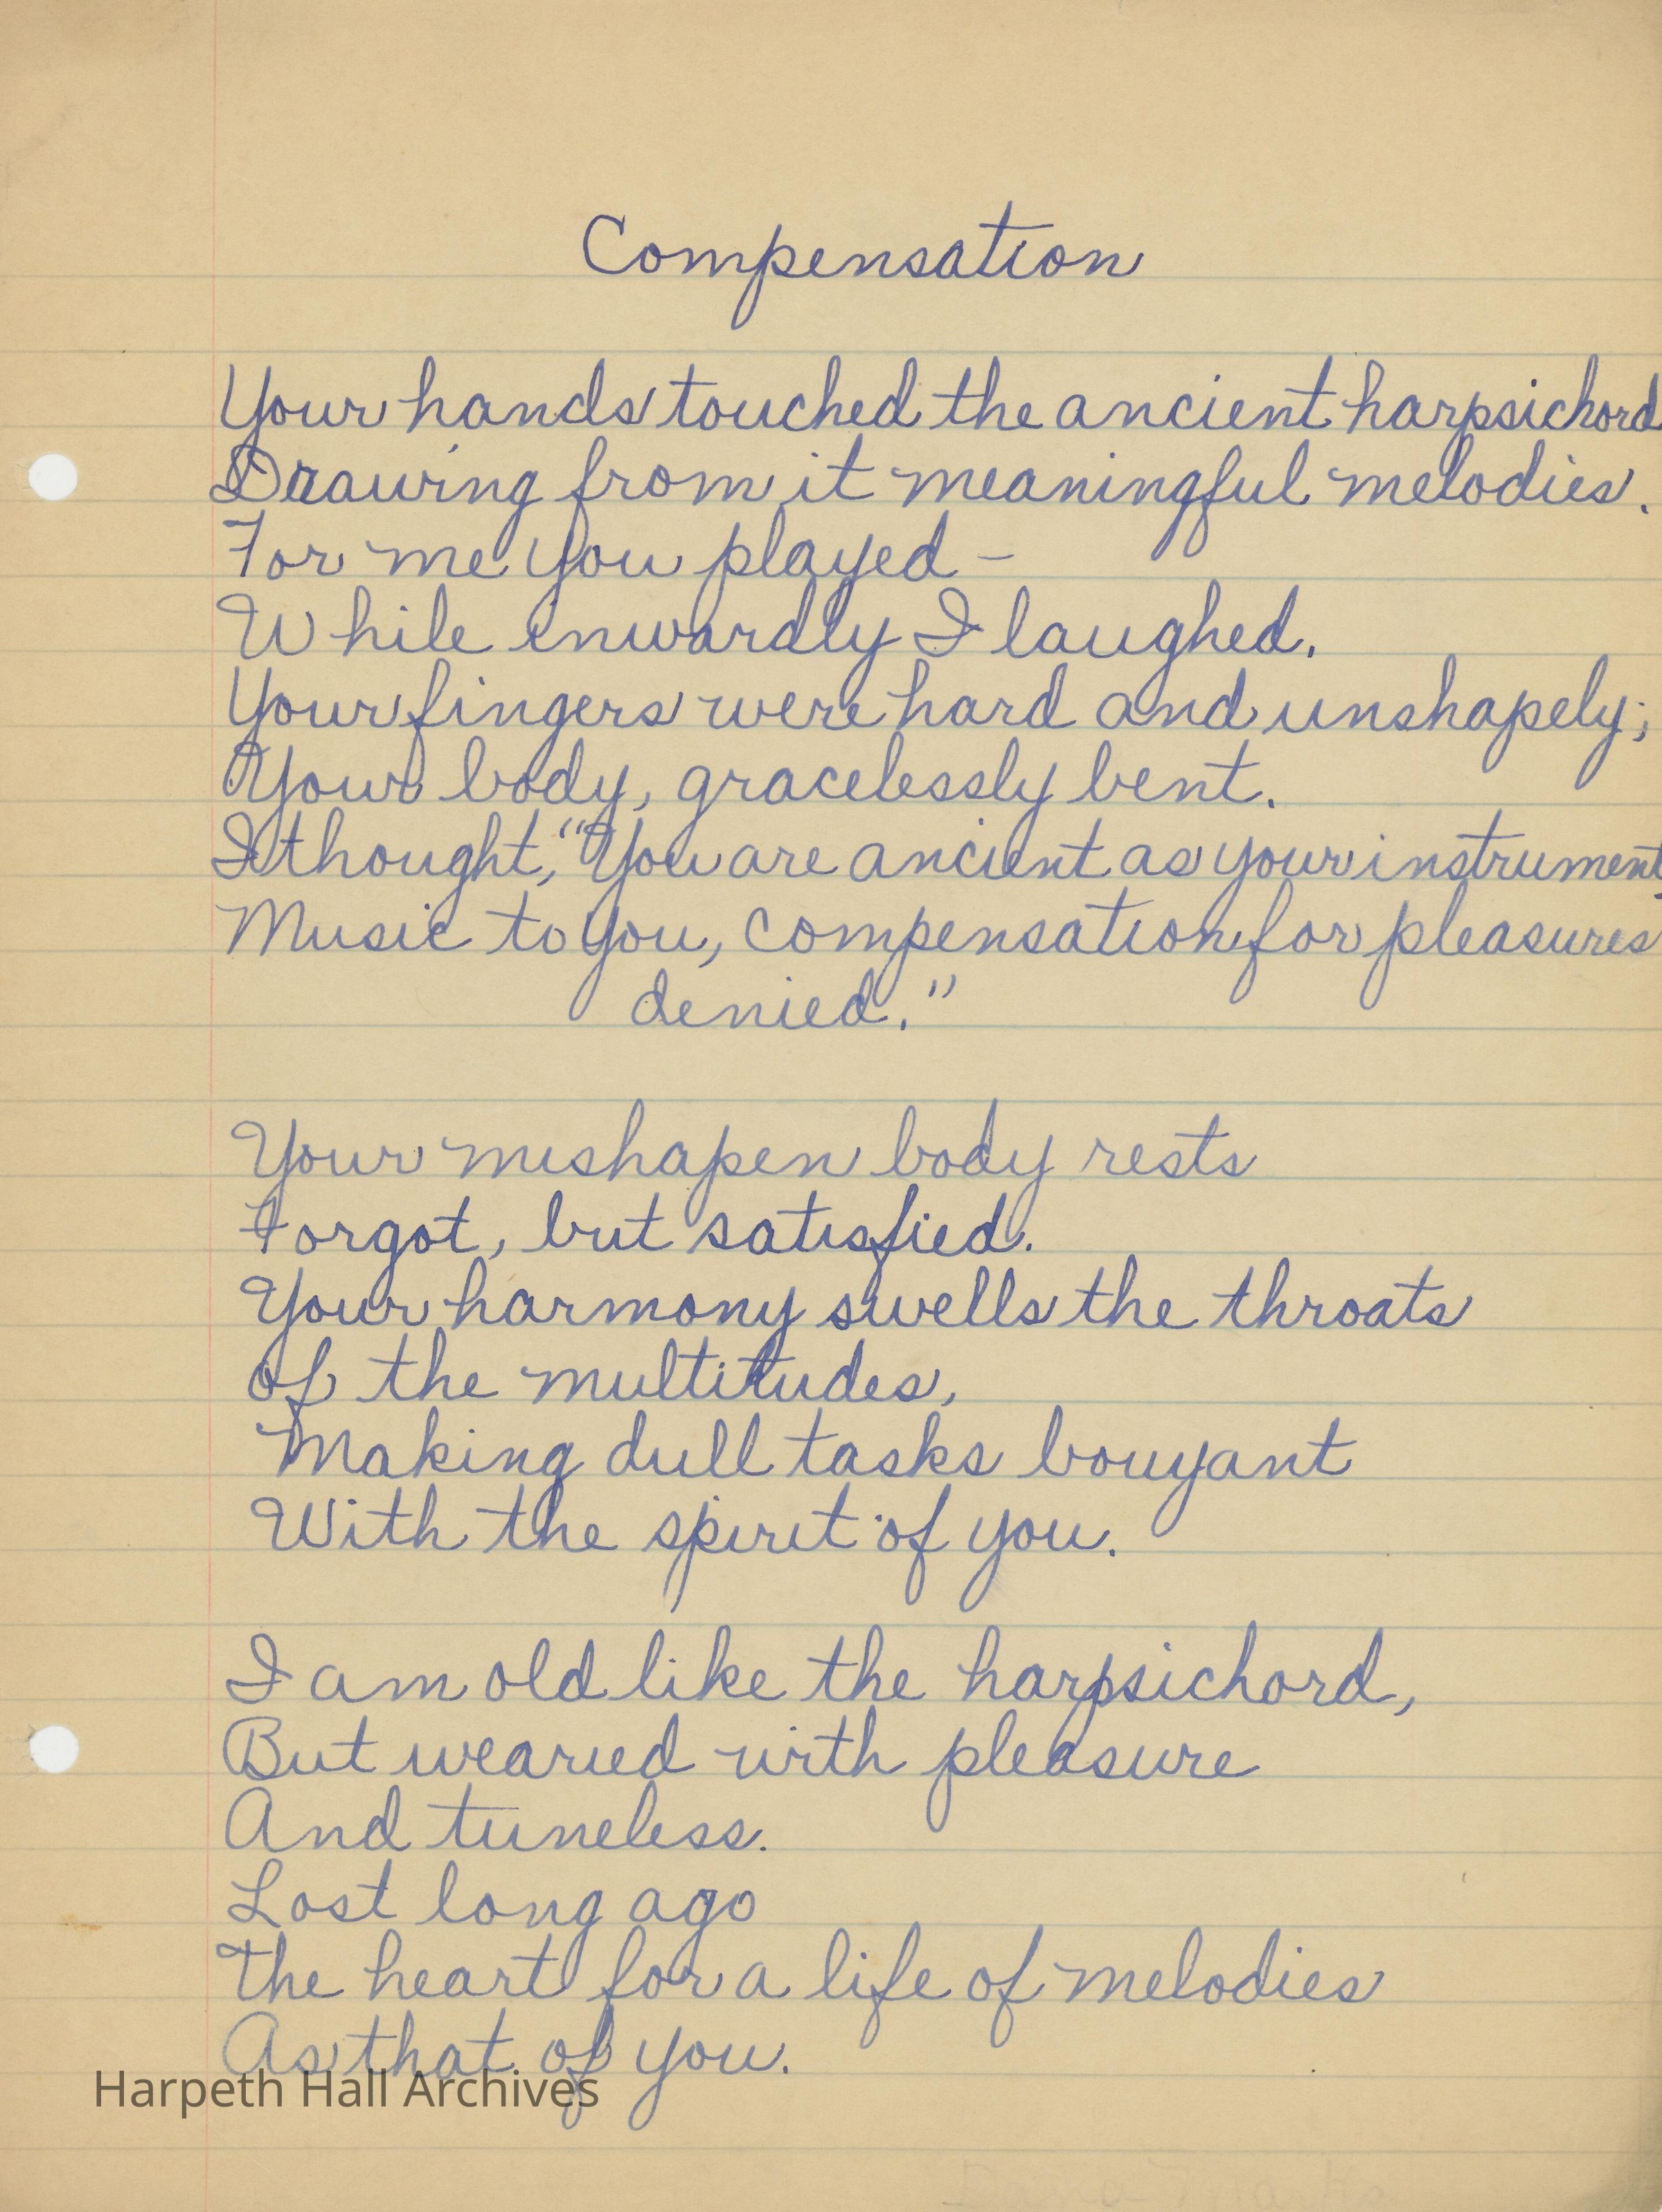 Compensation
Your hands touched the ancient harpsichord
Drawing from it meaningful melodies.
For me you played –
While inwardly I laughed.
Your fingers were hard and unshapely;
Your body, gracelessly bent.
I thought, "You are ancient as your instrument
Music to you, compensation for pleasures
denied."
Your mishapen body rests
Forgot, but satisfied.
Your harmony swells the throats
of the multitudes,
Making dull tasks bouyant
With the spirit of you.
I am old like the harpsichord,
But wearied with pleasure
And tuneless.
Lost long ago
The heart for a life of melodies
As that of you.
Harpeth Hall Archives